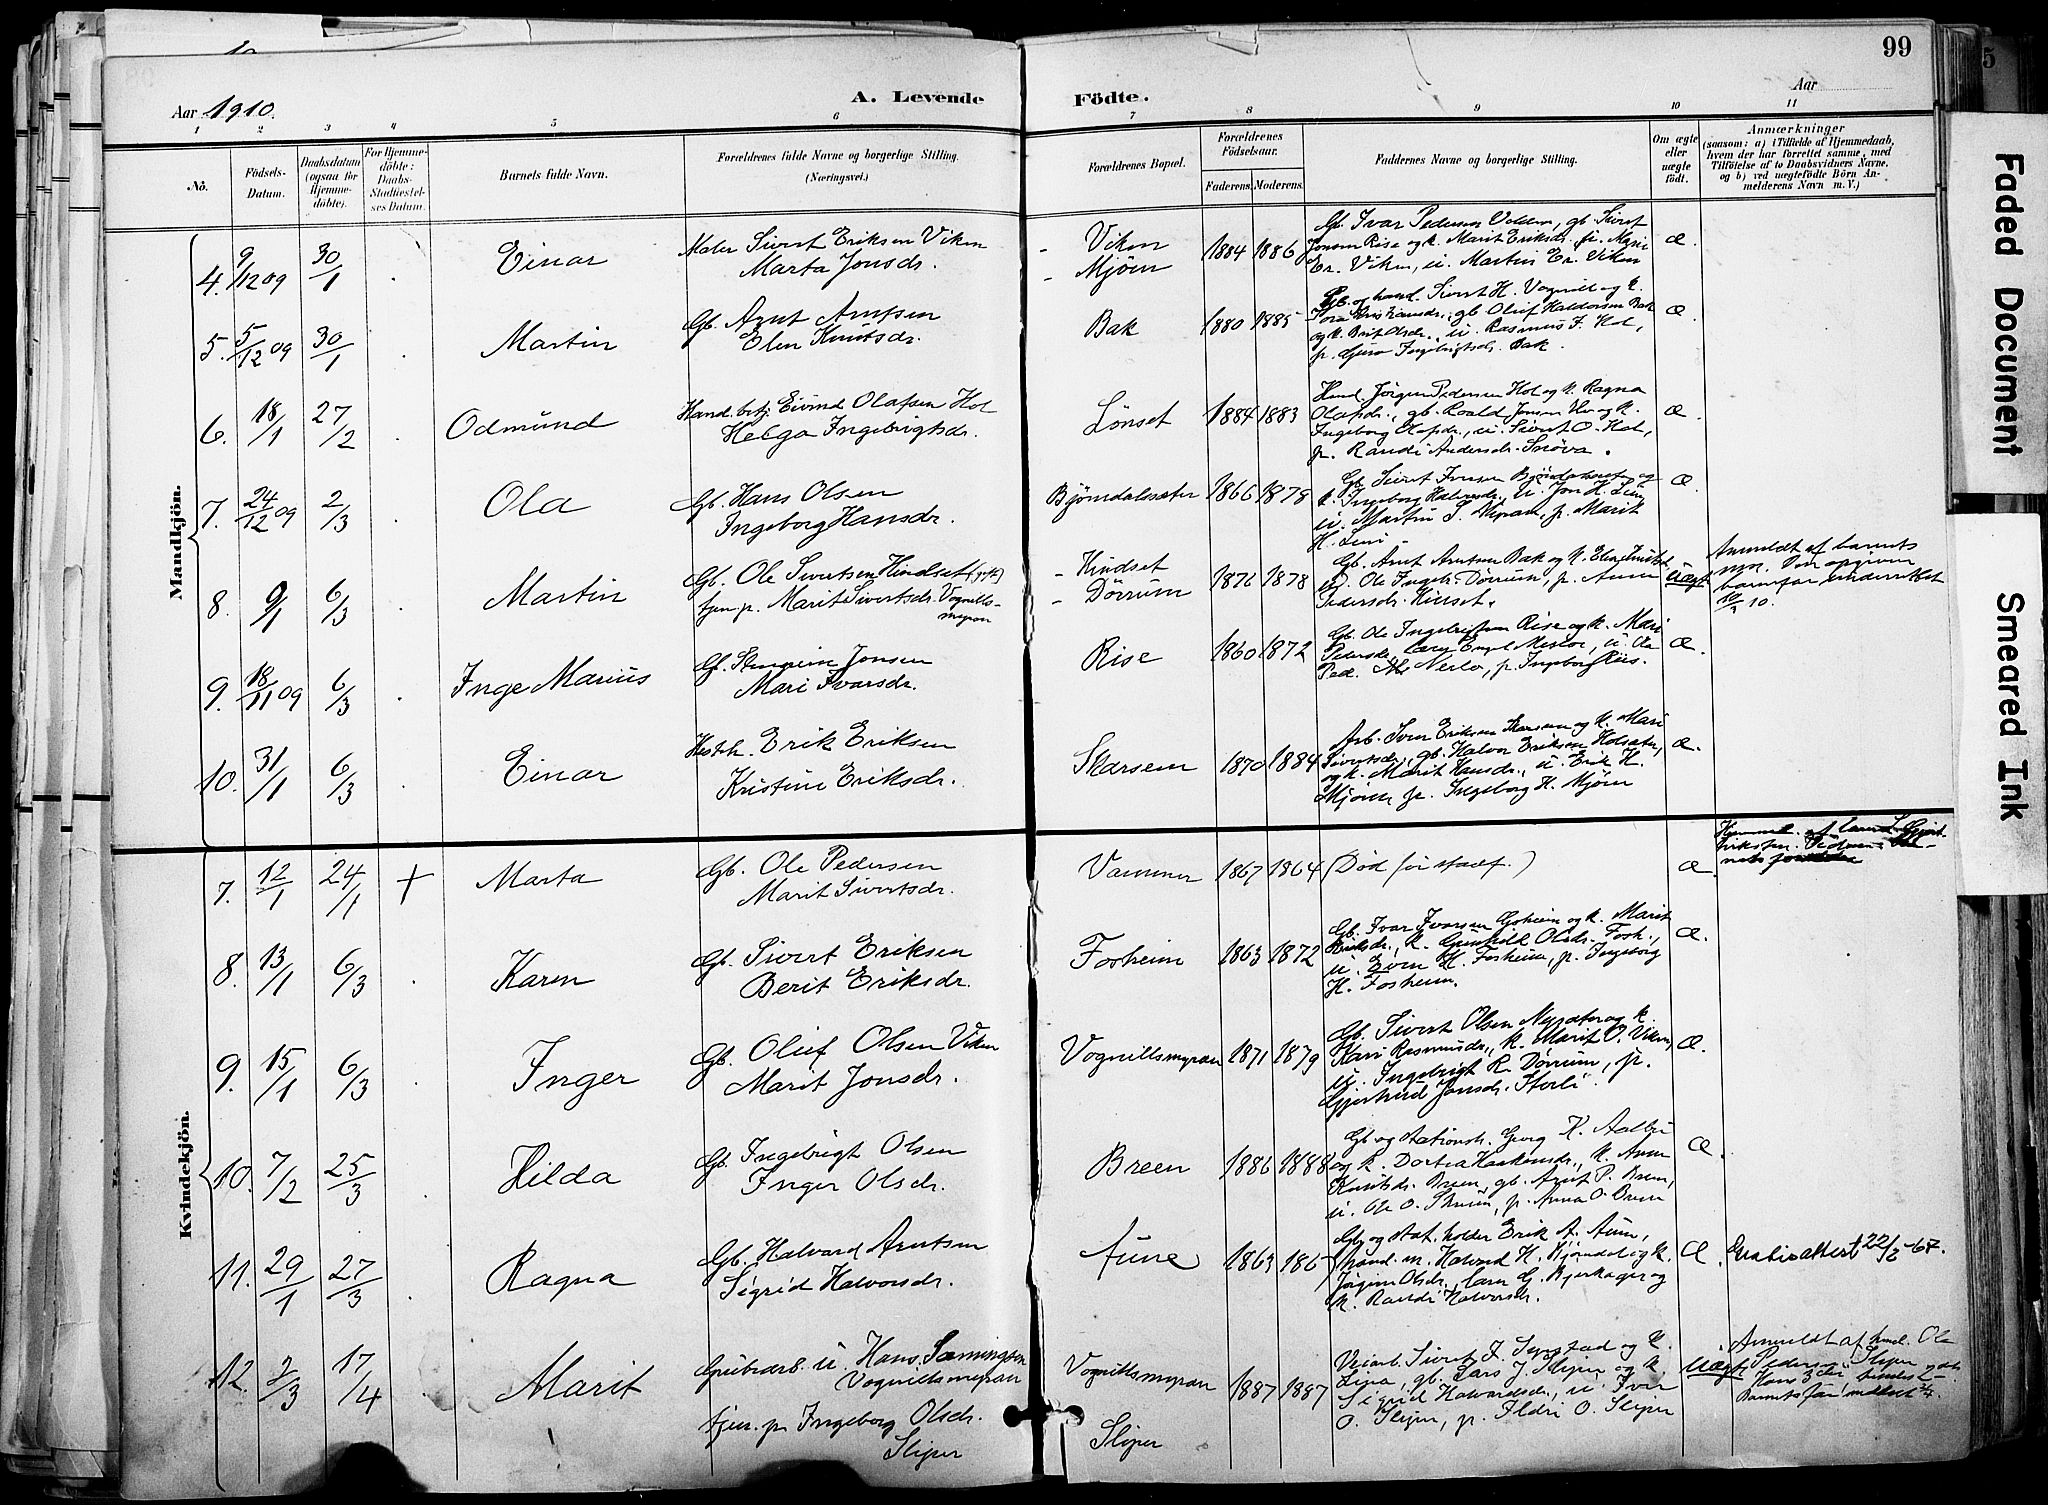 99
Aar 1910.
A. Levende
Födte.
Aar
1 2 3 4 5 6 7 8 9 10 11
No.
Födsels-
Datum.
Daabsdatum
(ogsaa for
Hjemme-
döbte).
For Hjemme-
döbte:
Daabs-
Stadfæstel-
ses Datum.
Barnets fulde Navn.
Forældrenes fulde Navne og borgerlige Stilling.
(Næringsvei.)
Forældrenes Bopæl.
Forældrenes
Födselsaar.
Faderens.
Moderens.
Faddernes Navne og borgerlige Stilling.
Om ægte
eller
uægte
födt.
Anmærkninger
(saasom: a) i Tilfælde af Hjemmedaab,
hvem der har forrettet samme, med
Tilföielse af to Daabsvidners Navne,
og b) ved uægtefödte Börn An-
melderens Navn m. V.)
Mandkjön.
4. 9/12 09 30/1 Einar
Maler Sivert Eriksen Viken
Marta Jonsdr.
Viken
Mjøen
1884 1886
Gb. Ivar Pedersen Volden, gb. Sivert
Jonsen Rise og k. Marit Eriksdr.
Er. Viken, u. Martin Er. Viken
Æ.
5. 5/12 09 30/1 Martin
Gb. Arnt Arntsen
Elen Knutsdr.
Bak
1880 1885
Sivert H. Vognill og k.
gb. Oluf Haldorsen Bak
og k. Brit Olsdr., u. Rasmus F. Hol,
p. Guro Ingebrigtsdr. Bak.
Æ.
6. 18/1 27/2 Odmund
Hand.betj. Eivind Olafsen Hol
Helga Ingebrigtsdr.
Lønset
1884 1883
Hand. Jørgen Pedersen Hol og k. Ragna
Olafsdr., gb. Roald Jonsen Hev og k.
Ingeborg Olafsdr., u. Sivert O. Hol,
p. Randi Andersdr. Snöva.
Æ.
7. 24/12 09 2/3 Ola
Gb. Hans Olsen
Ingeborg Hansdr.
Bjørndalsæter
1866 1878
Gb. Sivert Iversen og
k. Ingeborg Halvorsdr., u. Jon H.
u. Martin S. p. Marit
H.
Æ.
8. 9/1 6/3 Martin
Gb. Ole Sivertsen Hindset (gift)
tjen.p. Marit Sivertsdr. Vognills-
myran
Hindset
Dørrum
1876 1878
Gb. Arnt Arntsen Bak og k. Elen Knutsd.
u. Ole Ingebr. Dørrum, p. Anne
Pedersdr. Hinset.
Uægt.
Anmeldt af barnets
mor. Den opgivne
barnefar underrettet
10.
9. 18/11 09 6/3 Inge Marius
Gb. Jonsen
Mari Ivarsdr.
Rise
1860 1872
Gb. Ole Ingebrigtsen Rise og k. Mari
Pedersdr. u. Ola
Ped. Nerlo, p. Ingeborg Riis.
Æ.
10. 31/1 6/3 Einar
Erik Eriksen
Kristine Eriksdr.
Skarsem
1870 1884
Arb. Sven Eriksen Skarsem og k. Mari
Sivertsdr., gb. Halvor Eriksen Holsæter,
og k. Marit Hansdr., u. Erik H.
Mjøen p. Ingeborg H. Mjøen
Æ.
Kvindekjön.
7. 12/1 24/1 + Marta
Gb. Ole Pedersen
Marit Sivertsdr.
Vammer
1867 1864
(Død før stadf.)
Æ.
8. 13/1 6/3 Karen
Gb. Sivert Eriksen
Berit Eriksdr.
Fosheim
1863 1872
Gb. Ivar Ivarsen Gjøheim og k. Marit
Eriksdr., k. Gunhild Olsdr. Fosh.,
u. Even H. Fosheim, p. Ingeborg
H. Fosheim.
Æ.
9. 15/1 6/3 Inger
Gb. Oluf Olsen Viken
Marit Jonsdr.
Vognillsmyran
1871 1879
Gb. Sivert Olsen Nysæter og k.
Kari Rasmusdr., k. Marit O. Viken,
u. Ingebrigt R. Dørrum, p.
Gjertrud Jonsdr. Storli.
Æ.
10. 7/2 25/3 Hilda
Gb. Ingebrigt Olsen
Inger Olsdr.
Breen
1886 1888
Gb og stationsh. Georg K. Aalbu
og k. Dortea Haakensdr., k. Anne
Knutsdr. Breen, gb. Arnt P. Breen,
u. Ole O. Skrum, p. Anna O. Breen
Æ.
11. 29/1 27/3 Ragna
Gb. Halvard Arntsen
Sigrid Halvorsdr.
Aune
1863 1867
Gb og stat.holder Erik A. Aune,
hand.m. Halvard H. Bjørndal og k.
Jørgine Olsdr., lærer G. Bjerkager og
k. Randi Halvorsdr.
Æ.
Gratisattest 22/2-67.
12. 2/3 17/4 Marit
Grubearb. u. Hans Sæmingsen
Vognillsmyran
tjen.p. Ingeborg Olsdr.
Sliper
Vognillsmyran
Sliper
1887 1887
Veiarb. Sivert J. og k.
gb. Lars J. Sliper og k.
Sigrid Halvardsdr., u. Ivar
O. Sliper, p. Ildri O. Sliper
Uægt.
Anmeldt af hmd. Ola
Pedersen Sliper
Faded Document
Smeared Ink